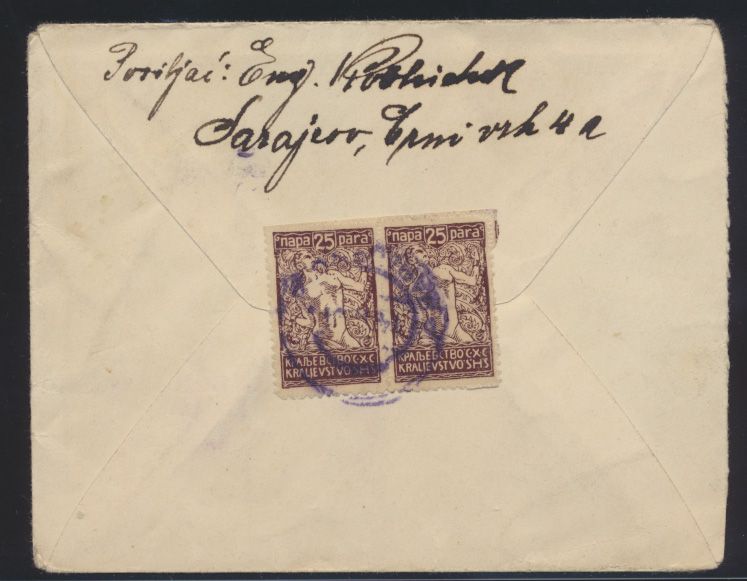 Posiljač: Eng.
Sarajevo, Crni vrh 4a
пара 25 para
КРАЉЕВСТВО·С·Х·С
KRALJEVSTVO·SHS
пара 25 para
КРАЉЕВСТВО·С·Х·С
KRALJEVSTVO·SHS